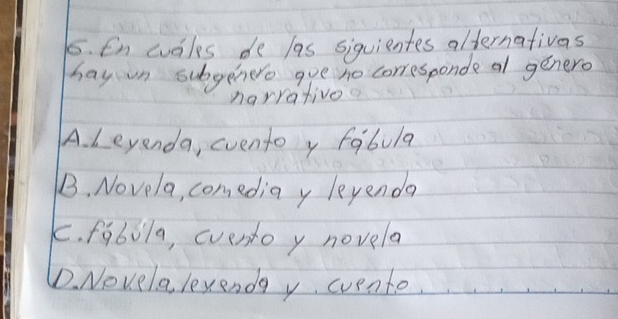 6. En cuáles de las siguientes alternativas
hay un subgénero que no corresponde al género
narrativo
A. Leyenda, cuento y fábula
B. Novela, comedia y leyenda
C. fábula, cuento y novela
D. Novela, leyenda y cuento